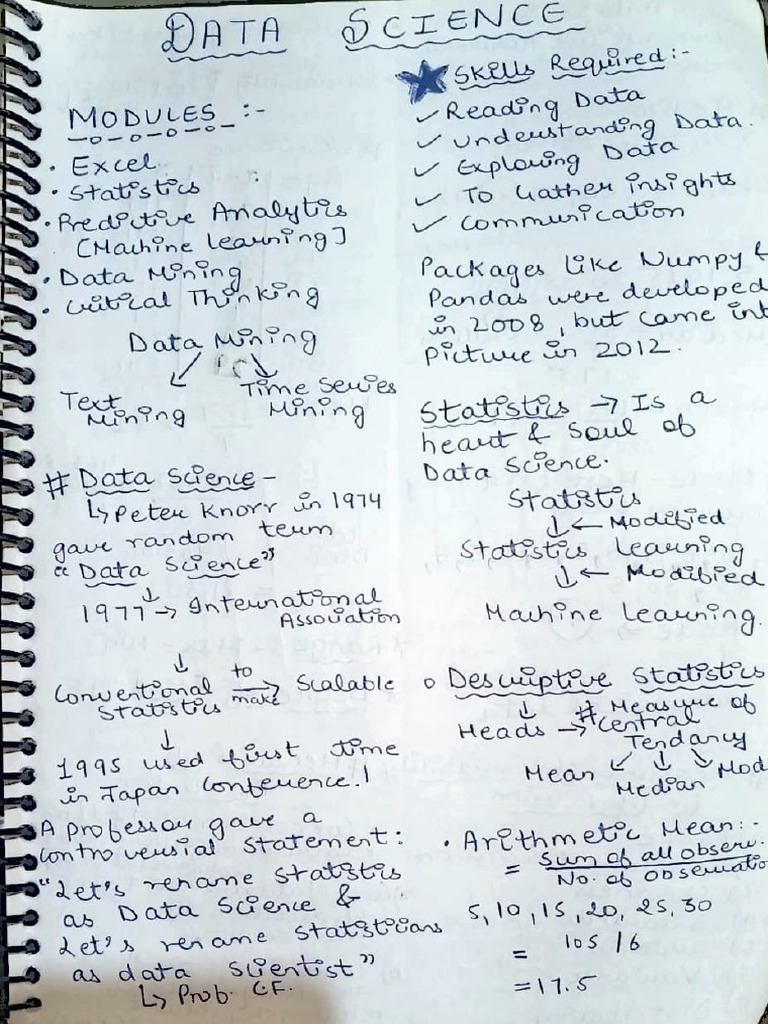 DATA SCIENCE
MODULES :-
• Excel
• Statistics
• Predictive Analytics
[Machine Learning]
• Data Mining
• Critical Thinking
Data Mining
Text Mining
Time Series Mining
# Data Science -
↳ Peter Knorr in 1974
gave random term
"Data Science"
↓
1977 → International
Association
↓
Conventional Statistics to make → Scalable
↓
1995 used first time
in Japan Conference.!
A professor gave a
controversial statement:
"Let's rename Statistis
as Data Science &
Let's rename Statistians
as data Scientist"
↳ Prob. CF.
★ Skills Required:-
✓ Reading Data
✓ Understanding Data.
✓ Exploring Data
✓ To Gather insights
✓ Communication
Packages like Numpy &
Pandas were developed
in 2008, but came int
Picture in 2012.
Statistics → Is a
heart & soul of
Data Science.
Statistics
↓ ← Modified
Statistics Learning
↓ ← Modified
Machine Learning.
o Descriptive Statistics
↓
Heads → # Measure of
Central
Tendancy
Mean Median Mod
• Arithmetic Mean:-
= Sum of all observ.
No. of observatio
5, 10, 15, 20, 25, 30
= 105/6
= 17.5